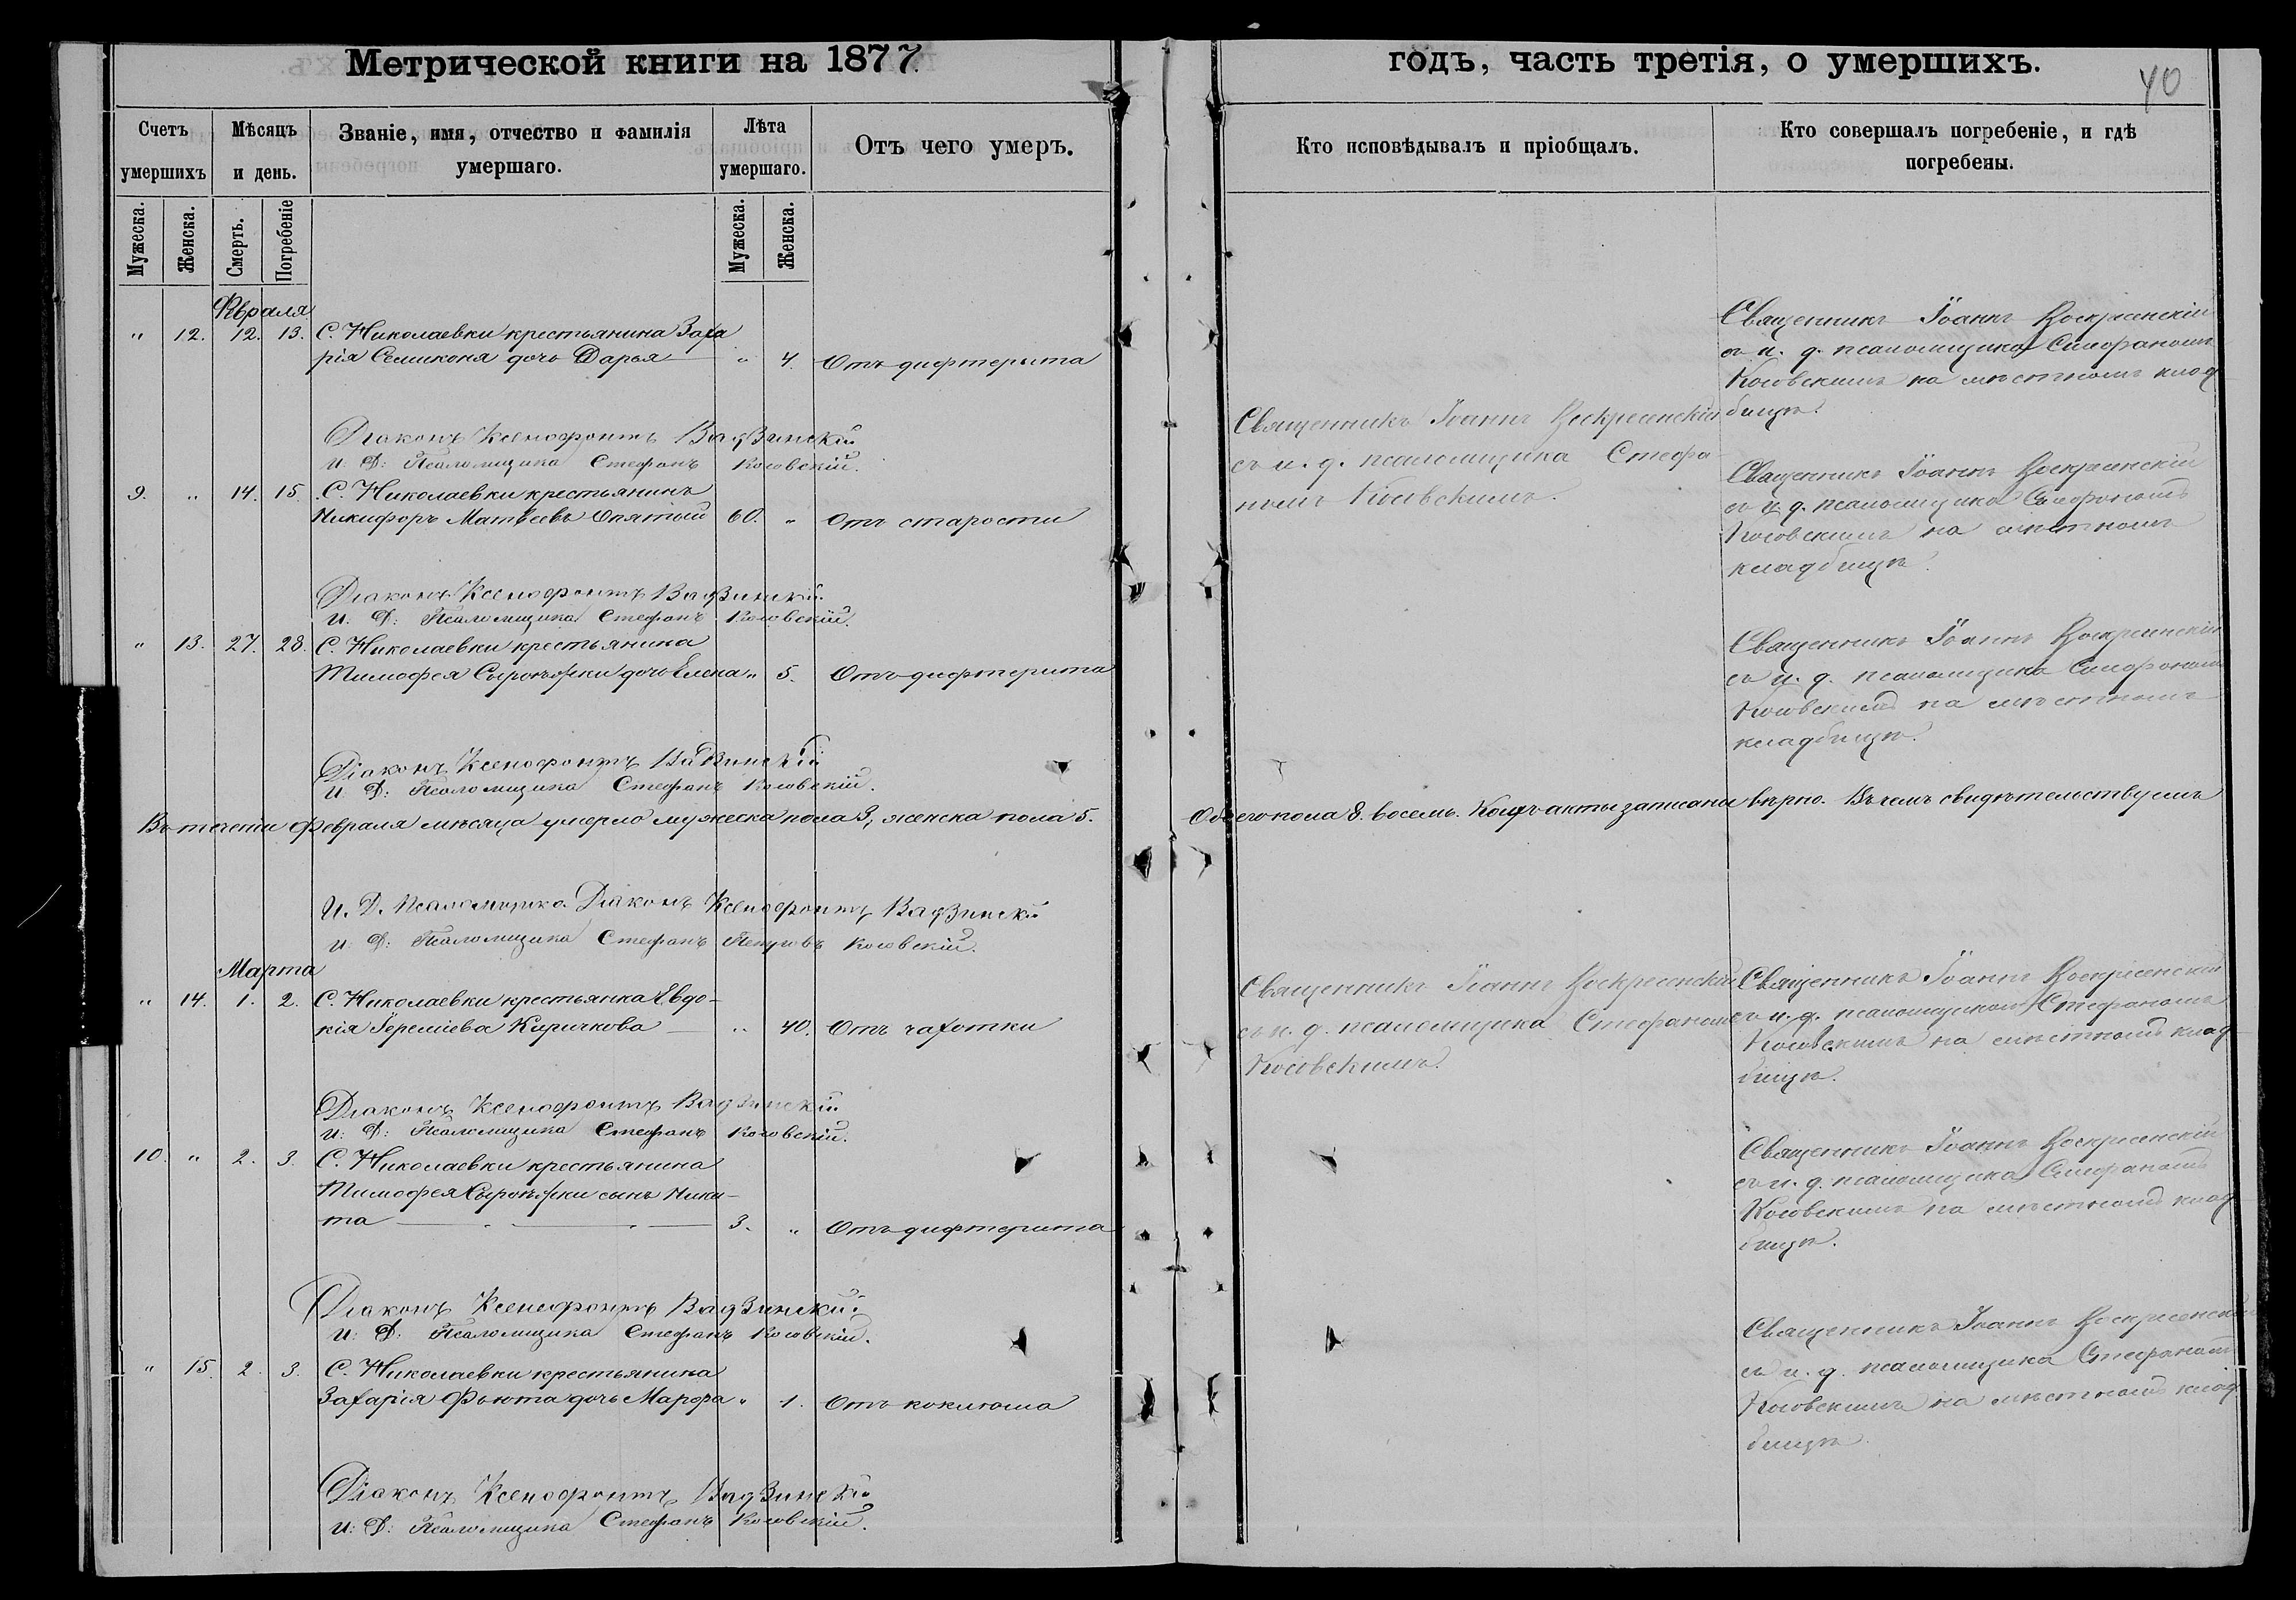 Метрической книги на 1877
годъ, часть третія, о умершихъ.
40
Счетъ умершихъ
Мѣсяцъ и день.
Званіе, имя, отчество и фамилія умершаго.
Лѣта умершаго.
Отъ чего умеръ.
Кто исповѣдывалъ и пріобщалъ.
Кто совершалъ погребеніе, и гдѣ погребены.
Мужеска.
Женска.
Смерть.
Погребеніе
Мужеска.
Женска.
Февраля
" 12. 12. 13. С. Николаевки крестьянина Заха
рія Семиконя дочь Дарья — " 4. Отъ дифтерита
Священникъ Іоаннъ Воскресенскій
съ и. д. псаломщика Стефаномъ
Косовскимъ на мѣстномъ клад
бищѣ.
Діаконъ Ксенофонтъ Вадзинскій
И: Д: Псаломщика Стефанъ Косовскій.
Священникъ Іоаннъ Воскресенскій
съ и. д. псаломщика Стефа
номъ Косовскимъ.
9. " 14. 15. С. Николаевки крестьянинъ
Никифоръ Матвѣевъ Опятый 60. " Отъ старости
Священникъ Іоаннъ Воскресенскій
съ и. д. псаломщика Стефаномъ
Косовскимъ на мѣстномъ
кладбищѣ.
Діаконъ Ксенофонтъ Вадзинскій
И: Д: Псаломщика Стефанъ Косовскій.
" 13. 27. 28. С. Николаевки крестьянина
Тимофея Сыроѣжки дочь Елена " 5. Отъ дифтерита
Священникъ Іоаннъ Воскресенскій
съ и. д. псаломщика Стефаномъ
Косовскимъ на мѣстномъ
кладбищѣ.
Діаконъ Ксенофонтъ Вадзинскій
И: Д: Псаломщика Стефанъ Косовскій.
Въ теченіи февраля мѣсяца умерло мужеска пола 3, женска пола 5. Обоего пола 8. восемь. Коихъ акты записаны вѣрно. Въ чемъ свидѣтельствуемъ
И. Д. Псаломщика Діаконъ Ксенофонтъ Вадзинскій
И: Д: Псаломщика Стефанъ Петровъ Косовскій.
Марта
" 14. 1. 2. С. Николаевки крестьянка Евдо-
кія Іереміева Киричкова — " 40. Отъ чахотки
Священникъ Іоаннъ Воскресенскій
съ и. д. псаломщика Стефаномъ
Косовскимъ.
Священникъ Іоаннъ Воскресенскій
съ и. д. псаломщикомъ Стефаномъ
Косовскимъ на мѣстномъ клад
бищѣ.
Діаконъ Ксенофонтъ Вадзинскій
И: Д: Псаломщика Стефанъ Косовскій.
10. " 2. 3. С. Николаевки крестьянина
Тимофея Сыроѣжки сынъ Ники-
та — 3. " Отъ дифтерита
Священникъ Іоаннъ Воскресенскій
съ и. д. псаломщика Стефаномъ
Косовскимъ на мѣстномъ клад
бищѣ.
Діаконъ Ксенофонтъ Вадзинскій
И: Д: Псаломщика Стефанъ Косовскій.
" 15. 2. 3. С. Николаевки крестьянина
Захарія Фьюта дочь Марфа " 1. Отъ коклюша
Священникъ Іоаннъ Воскресенскій
съ и. д. псаломщика Стефаномъ
Косовскимъ на мѣстномъ клад
бищѣ.
Діаконъ Ксенофонтъ Вадзинскій
И: Д: Псаломщика Стефанъ Косовскій.